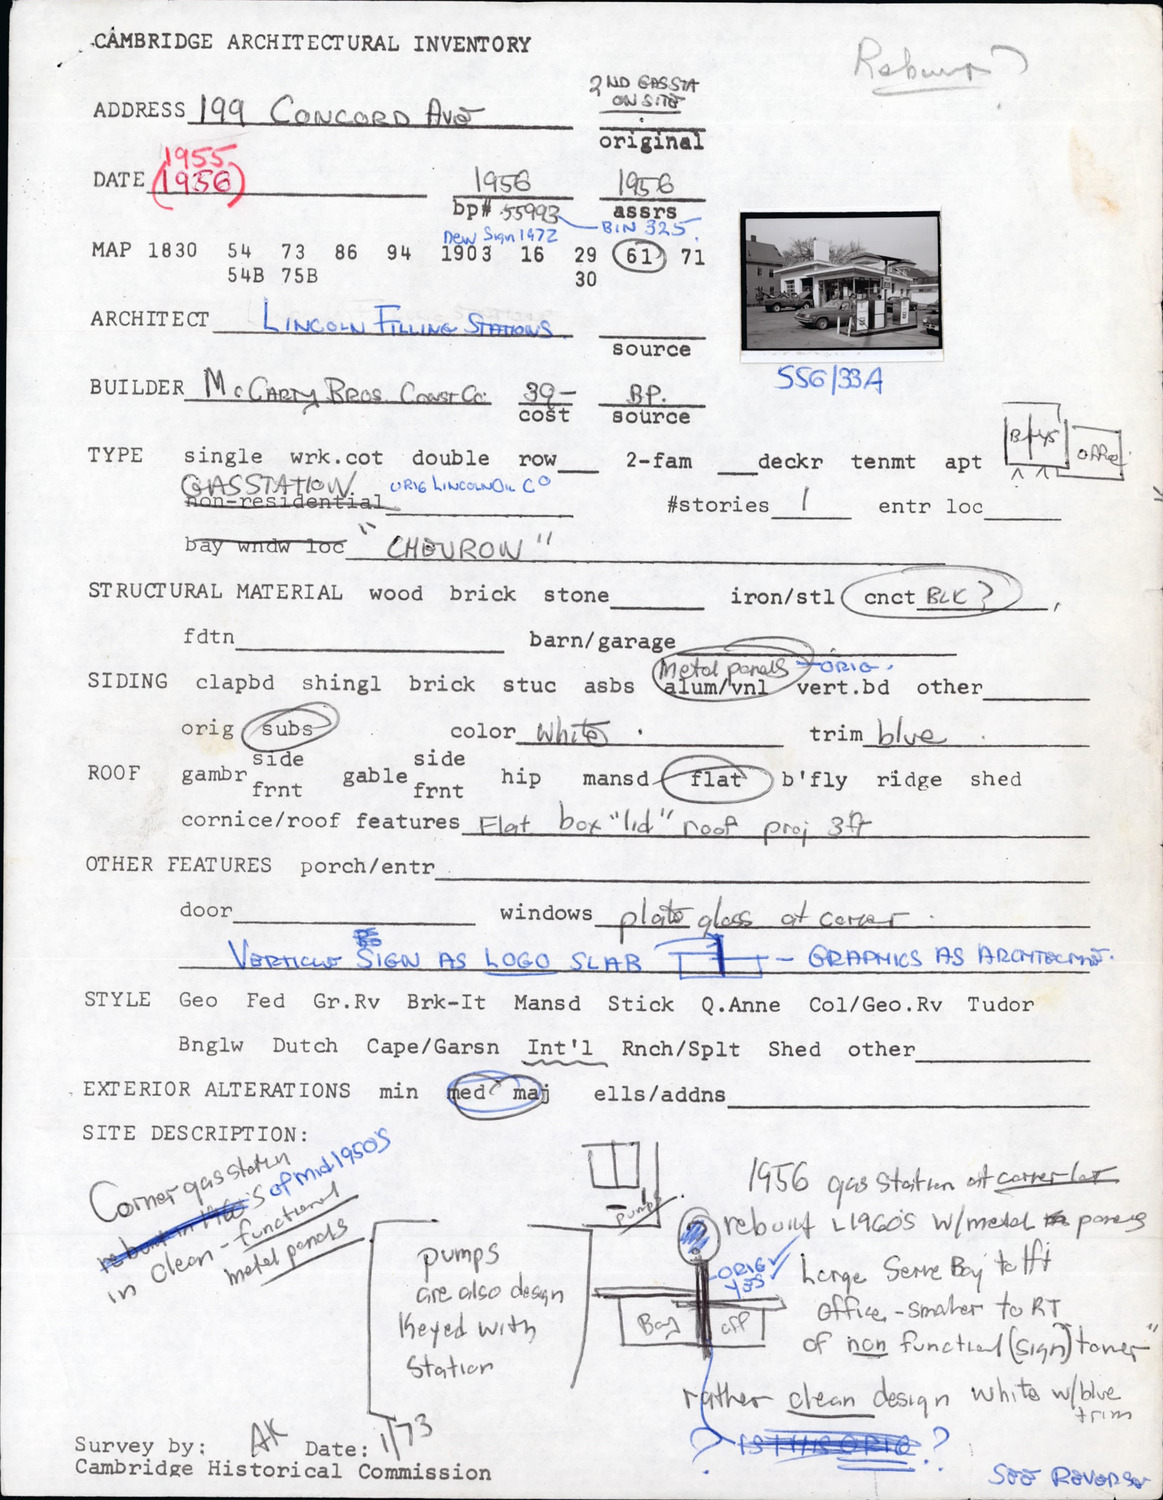 CAMBRIDGE ARCHITECTURAL INVENTORY
2ND GAS STA
ON SITE
ADDRESS 199 CONCORD AVE
original
1955
DATE (1956) 1956 1956
bp# 55993 assrs
New Sign 1972 BIN 325
MAP 1830 54 73 86 94 1903 16 29 61 71
54B 75B 30
ARCHITECT LINCOLN FILLING STATIONS
source
556/33A
BUILDER McCARTY BROS. CONST CO. 39- BP.
cost source
Bays office
TYPE single wrk.cot double row 2-fam deckr tenmt apt
GAS STATION ORIG LINCOLN OIL CO
non-residential #stories 1 entr loc
bay wndw loc "CHEVRON"
STRUCTURAL MATERIAL wood brick stone iron/stl cnct BLK?
fdtn barn/garage
Metal panels - ORIG.
SIDING clapbd shingl brick stuc asbs alum/vnl vert.bd other
orig subs color White trim blue
ROOF gambr side frnt gable side frnt hip mansd flat b'fly ridge shed
cornice/roof features Flat box "lid" roof proj 3ft
OTHER FEATURES porch/entr
door windows plate glass at corner
VERTICLE SIGN AS LOGO SLAB - GRAPHICS AS ARCHITECTURE.
STYLE Geo Fed Gr.Rv Brk-It Mansd Stick Q.Anne Col/Geo.Rv Tudor
Bnglw Dutch Cape/Garsn Int'l Rnch/Splt Shed other
EXTERIOR ALTERATIONS min med maj ells/addns
SITE DESCRIPTION:
Corner gas station
rebuilt in 1960'S of mid 1950'S
in clean-functional
metal panels
pumps
pumps
are also design
Keyed with
Station
ORIG
YES
Bay off
1956 gas station at corner lot
rebuilt L1960'S w/metal panels
Large Serve Bay to lft
Office - smaller to RT
of non functional (sign) tower"
rather clean design white w/blue
trim
? IS THIS ORIG ?
Survey by: AK Date: 1/73
Cambridge Historical Commission
SEE REVERSE